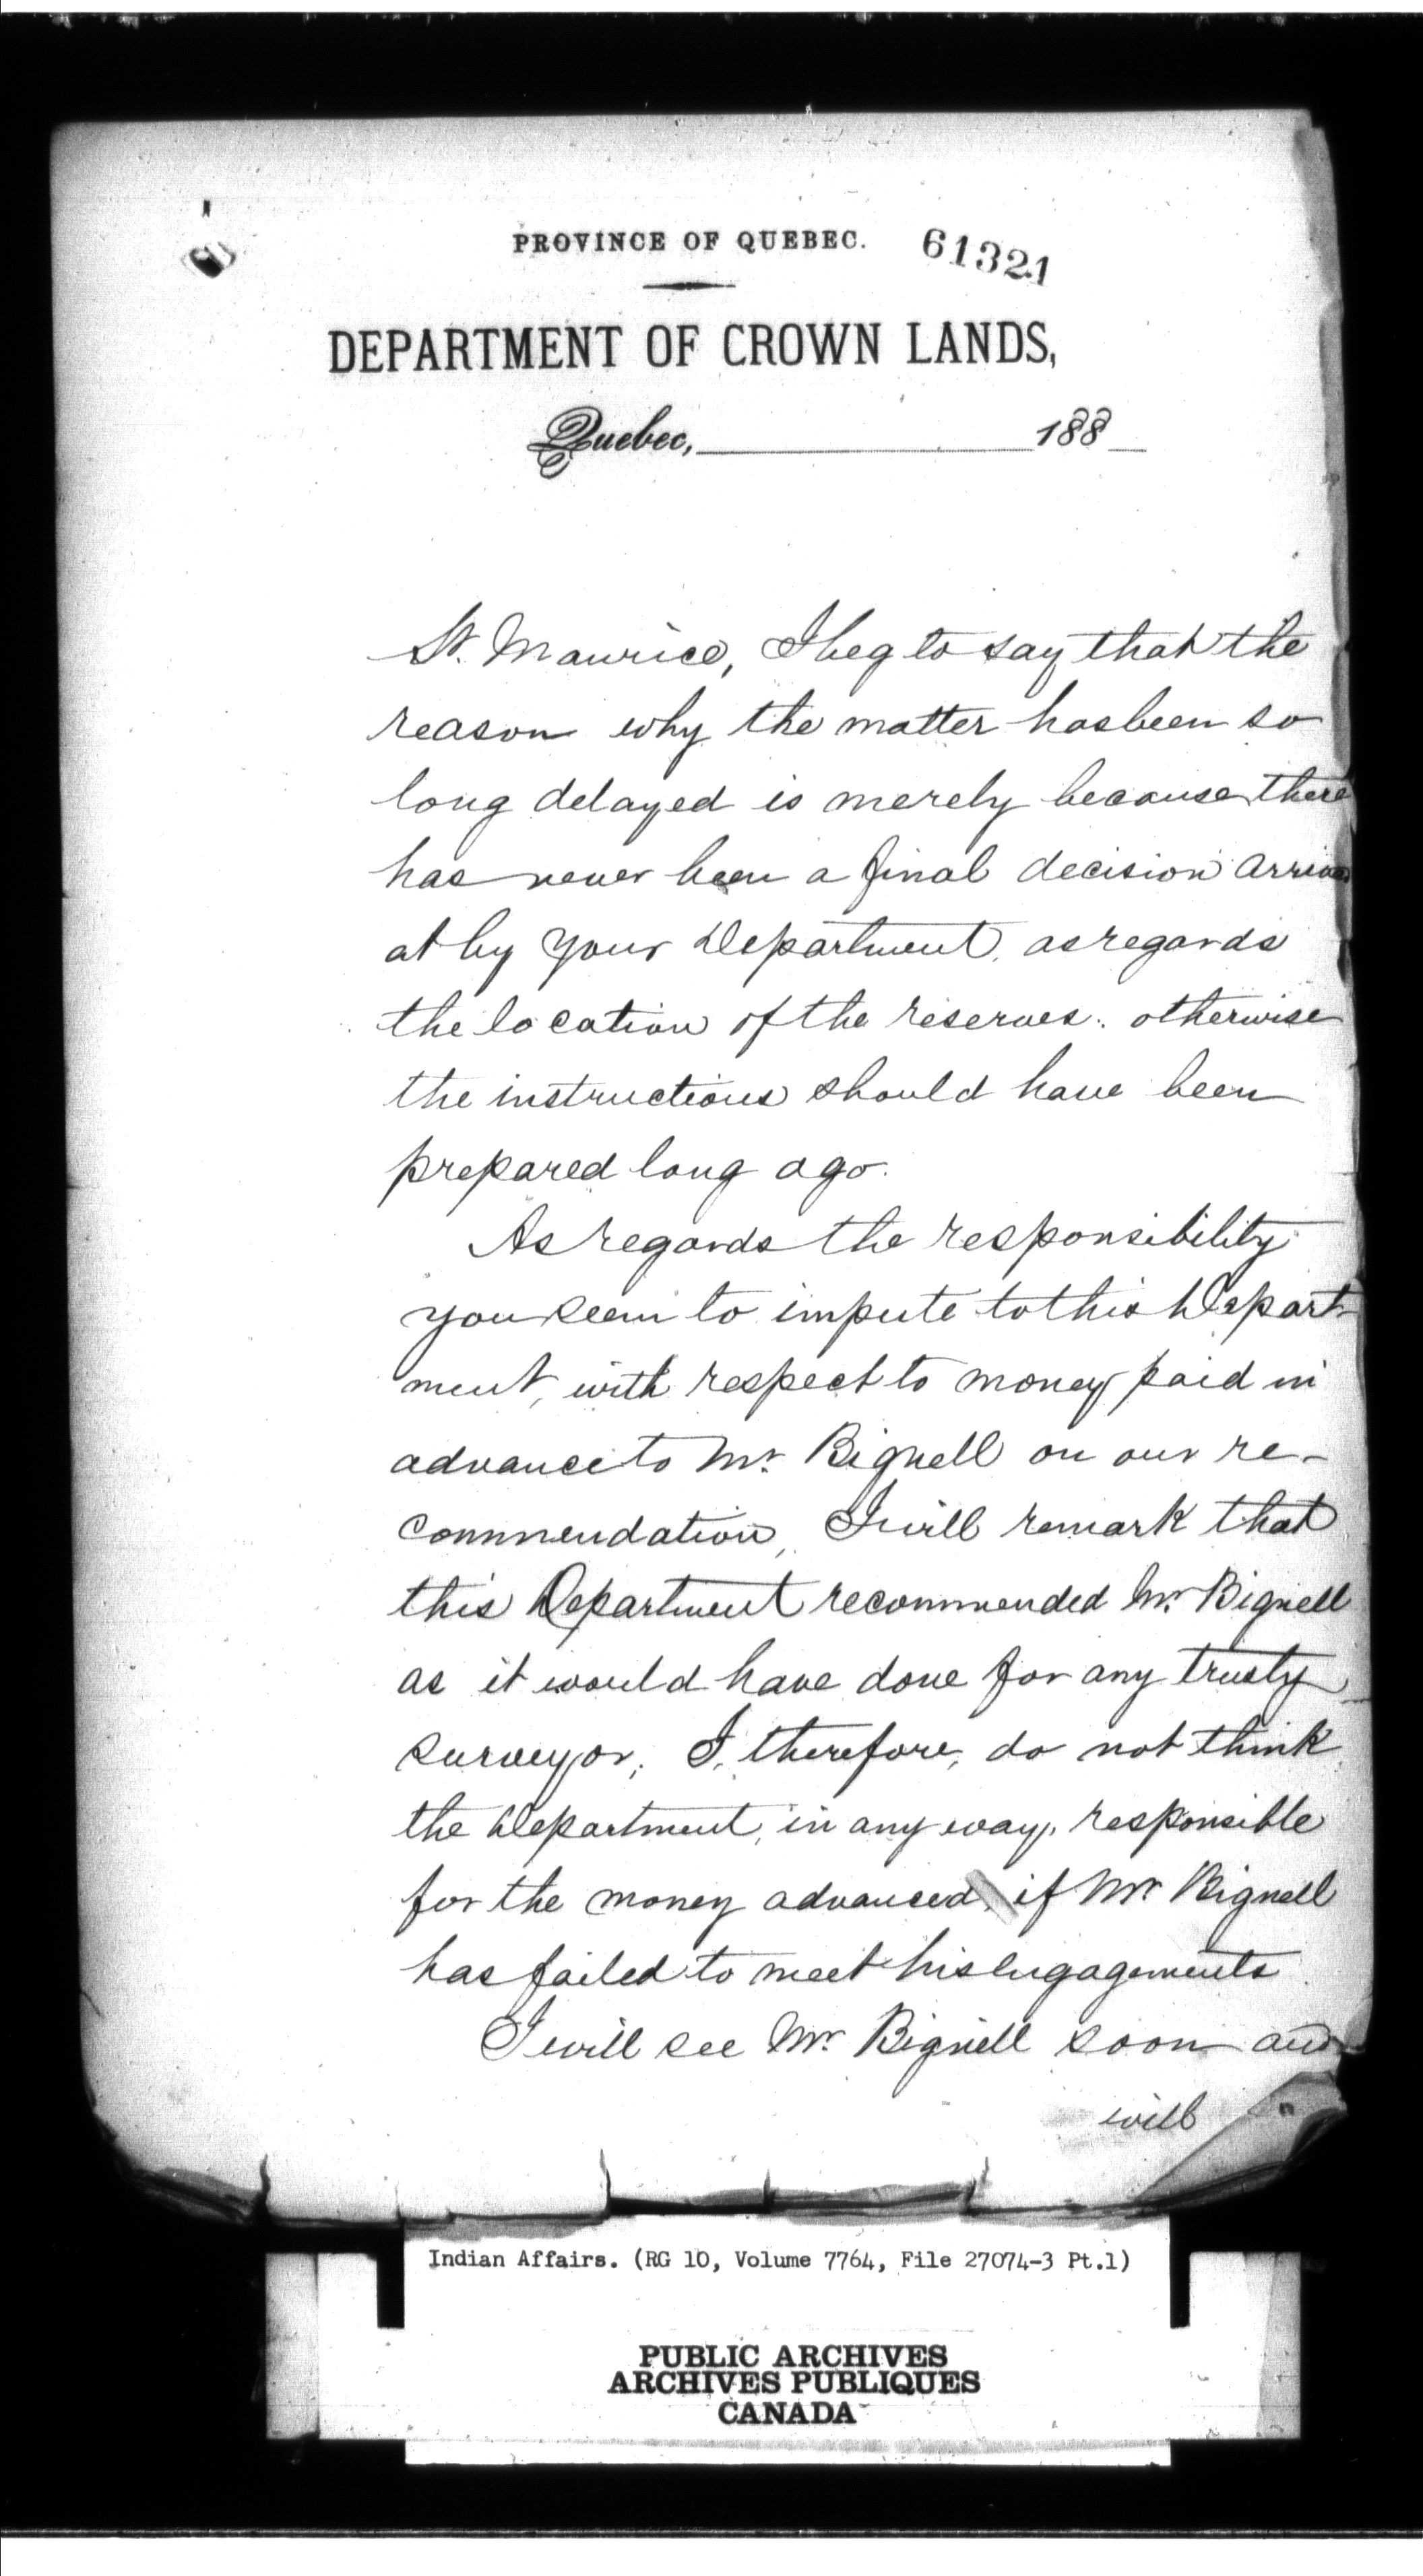 PROVINCE OF QUEBEC. 61321
DEPARTMENT OF CROWN LANDS,
Quebec, 188
St. Maurice, I beg to say that the
reason why the matter has been so
long delayed is merely because there
has never been a final decision arrived
at by your Department, as regards
the location of the reserves: otherwise
the instructions should have been
prepared long ago.
As regards the responsibility
you seem to impute to this Depart-
ment, with respect to money paid in
advance to Mr. Bignell on our re-
commendation, I will remark that
this Department recommended Mr. Bignell
as it would have done for any trusty
surveyor; I, therefore, do not think
the Department, in any way, responsible
for the money advanced, if Mr Bignell
has failed to meet his engagements
I will see Mr. Bignell soon and
will
Indian Affairs. (RG 10, Volume 7764, File 27074-3 Pt.1)
PUBLIC ARCHIVES
ARCHIVES PUBLIQUES
CANADA